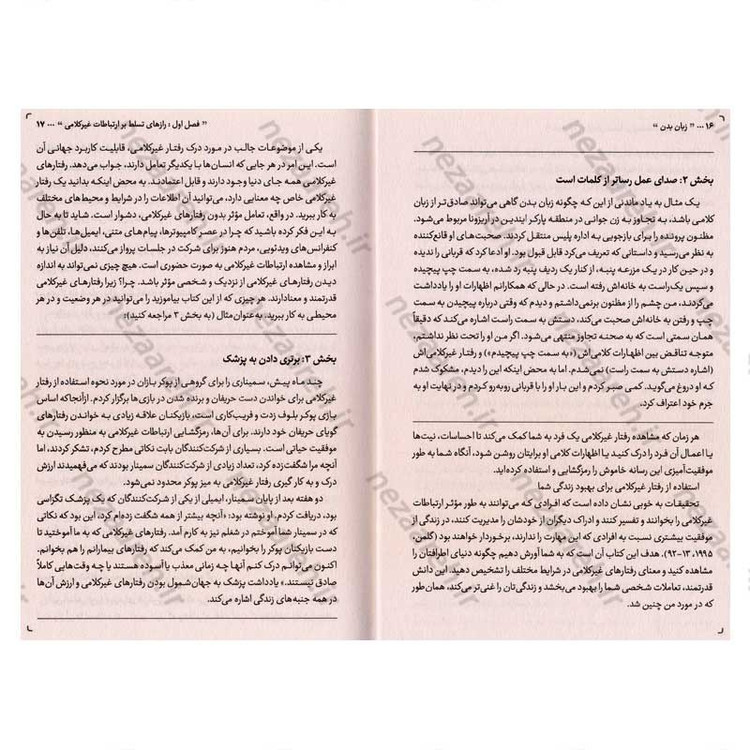 ۱۶ ... " زبان بدن "
بخش ۲: صدای عمل رساتر از کلمات است
یک مثال به یاد ماندنی از این که چگونه زبان بدن گاهی می‌تواند صادق‌تر از زبان
کلامی باشد، به تجاوز به زن جوانی در منطقه پارکر ایندین در آریزونا مربوط می‌شود.
مظنون پرونده را برای بازجویی به اداره پلیس منتقل کردند. صحبت‌های او قانع‌کننده
به نظر می‌رسید و داستانی که تعریف می‌کرد قابل قبول بود. او ادعا کرد که قربانی را ندیده
و در حین کار در یک مزرعه پنبه، از کنار یک ردیف پنبه رد شده، به سمت چپ پیچیده
و سپس یک‌راست به خانه‌اش رفته است. در حالی که همکارانم اظهارات او را یادداشت
می‌کردند، من چشم را از مظنون برنمی‌داشتم و دیدم که وقتی درباره پیچیدن به سمت
چپ و رفتن به خانه‌اش صحبت می‌کند، دستش به سمت راست اشاره می‌کند که دقیقاً
همان سمتی است که به صحنه تجاوز منتهی می‌شود. اگر من او را تحت نظر نداشتم،
متوجه تناقض بین اظهارات کلامی‌اش («به سمت چپ پیچیدم») و رفتار غیرکلامی‌اش
(اشاره دستش به سمت راست) نمی‌شدم. اما به محض اینکه این را دیدم، مشکوک شدم
که او دروغ می‌گوید. کمی صبر کردم و این بار او را با قربانی روبه‌رو کردم و در نهایت او به
جرم خود اعتراف کرد.
هر زمان که مشاهده رفتار غیرکلامی یک فرد به شما کمک می‌کند تا احساسات، نیت‌ها
یا اعمال آن فرد را درک کنید یا اظهارات کلامی او برایتان روشن شود، آنگاه شما به طور
موفقیت‌آمیزی این رسانه خاموش را رمزگشایی و استفاده کرده‌اید.
استفاده از رفتار غیرکلامی برای بهبود زندگی شما
تحقیقات به خوبی نشان داده است که افرادی که می‌توانند به طور مؤثر ارتباطات
غیرکلامی را بخوانند و تفسیر کنند و ادراک دیگران از خودشان را مدیریت کنند، در زندگی از
موفقیت بیشتری نسبت به افرادی که این مهارت را ندارند، برخوردار خواهند بود (گلمن،
۱۹۹۵، ۱۳-۹۲). هدف این کتاب آن است که به شما آموزش دهیم چگونه دنیای اطرافتان را
مشاهده کنید و معنای رفتارهای غیرکلامی در شرایط مختلف را تشخیص دهید. این دانش
قدرتمند، تعاملات شخصی شما را بهبود می‌بخشد و زندگی‌تان را غنی‌تر می‌کند، همان‌طور
که در مورد من چنین شد.
" فصل اول : رازهای تسلط بر ارتباطات غیرکلامی " ... ۱۷
یکی از موضوعات جالب در مورد درک رفتار غیرکلامی، قابلیت کاربرد جهانی آن
است. این امر در هر جایی که انسان‌ها با یکدیگر تعامل دارند، جواب می‌دهد. رفتارهای
غیرکلامی همه جای دنیا وجود دارند و قابل اعتمادند. به محض اینکه بدانید یک رفتار
غیرکلامی خاص چه معنایی دارد، می‌توانید آن اطلاعات را در شرایط و محیط‌های مختلف
به کار ببرید. در واقع، تعامل مؤثر بدون رفتارهای غیرکلامی، دشوار است. شاید تا به حال
به این فکر کرده باشید که چرا در عصر کامپیوترها، پیام‌های متنی، ایمیل‌ها، تلفن‌ها و
کنفرانس‌های ویدئویی، مردم هنوز برای شرکت در جلسات پرواز می‌کنند، دلیل آن نیاز به
ابراز و مشاهده ارتباطات غیرکلامی به صورت حضوری است. هیچ چیزی نمی‌تواند به اندازه
دیدن رفتارهای غیرکلامی از نزدیک و شخصی مؤثر باشد. چرا؟ زیرا رفتارهای غیرکلامی
قدرتمند و معنادارند. هر چیزی که از این کتاب بیاموزید را می‌توانید در هر وضعیت و در هر
محیطی به کار ببرید. به‌عنوان‌مثال (به بخش ۳ مراجعه کنید):
بخش ۳: برتری دادن به پزشک
چند ماه پیش، سمیناری را برای گروهی از پوکربازان در مورد نحوه استفاده از رفتار
غیرکلامی برای خواندن دست حریفان و برنده شدن در بازی‌ها برگزار کردم. ازآنجاکه اساس
بازی پوکر بلوف زدت و فریب‌کاری است، بازیکنان علاقه زیادی به خواندن رفتارهای
گویای حریفان خود دارند. برای آن‌ها، رمزگشایی ارتباطات غیرکلامی به منظور رسیدن به
موفقیت حیاتی است. بسیاری از شرکت‌کنندگان بابت نکاتی مطرح کردم، تشکر کردند، اما
آنچه مرا شگفت‌زده کرد، تعداد زیادی از شرکت‌کنندگان سمینار بودند که می‌فهمیدند ارزش
درک و به کار گیری رفتار غیرکلامی به میز پوکر محدود نمی‌شود.
دو هفته بعد از پایان سمینار، ایمیلی از یکی از شرکت‌کنندگان که یک پزشک تگزاسی
بود، دریافت کردم. او نوشته بود: «آنچه بیشتر از همه شگفت زده‌ام کرد، این بود که نکاتی
که در سمینار شما آموختم در شغلم نیز به کارم آمد. رفتارهای غیرکلامی که به ما آموختید تا
دست بازیکنان پوکر را بخوانیم، به من کمک می‌کند که رفتارهای بیمارانم را هم بخوانم.
اکنون می‌توانم درک کنم آنها چه زمانی معذب یا آسوده هستند یا چه وقت‌هایی کاملاً
صادق نیستند.» یادداشت پزشک به جهان‌شمول بودن رفتارهای غیرکلامی و ارزش آن‌ها
در همه جنبه‌های زندگی اشاره می‌کند.
nezaarteh.ir